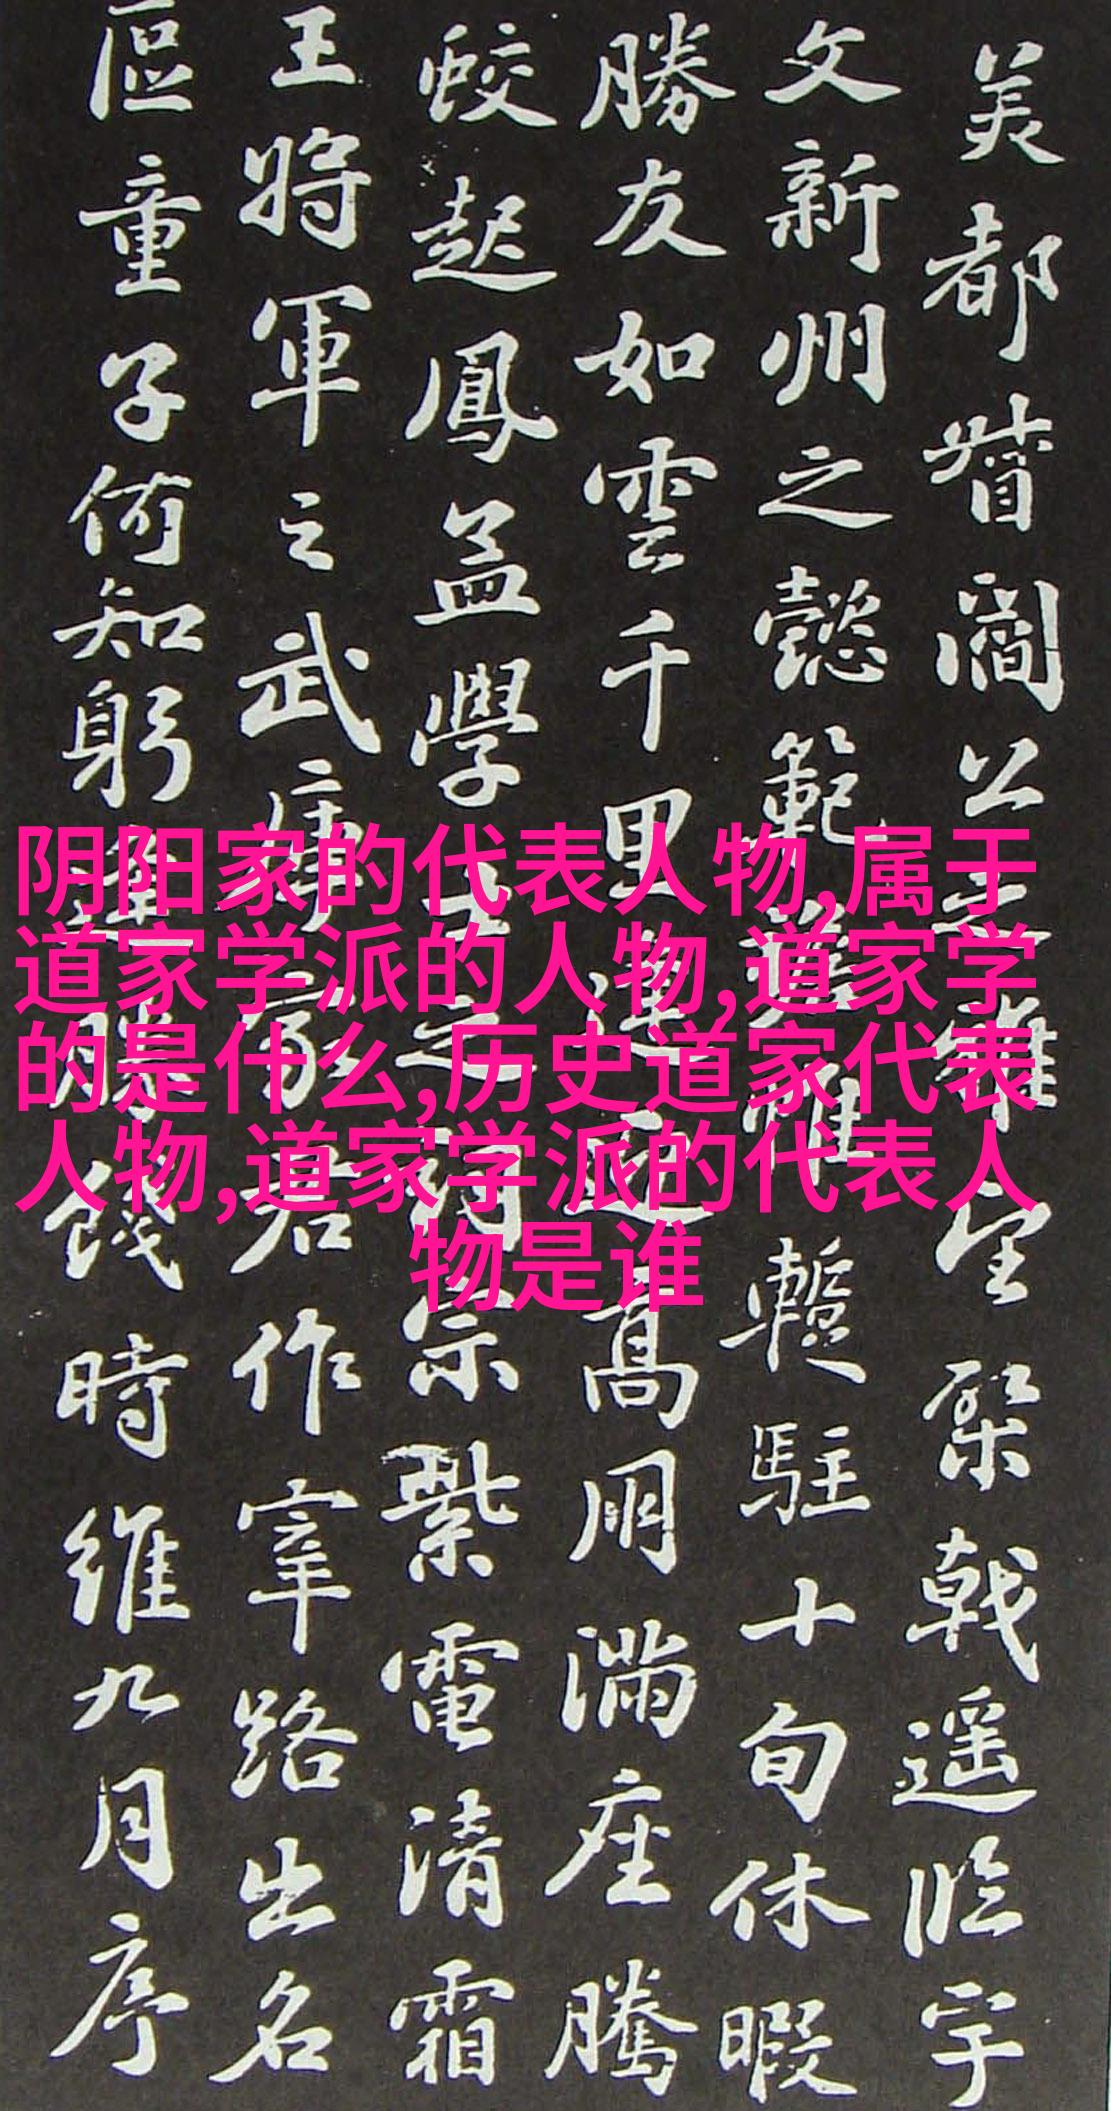 美都督閻公之雅望棨戟遥臨宇
文新州之懿範襜帷暫駐十旬休暇
勝友如雲千里逢迎高朋滿座騰
蛟起鳳孟學士之詞宗紫電清霜
王將軍之武庫家君作宰路出名
區童子何知躬逢勝餞時維九月序
阴阳家的代表人物,属于
道家学派的人物,道家学
的是什么,历史道家代表
人物,道家学派的代表人
物是谁